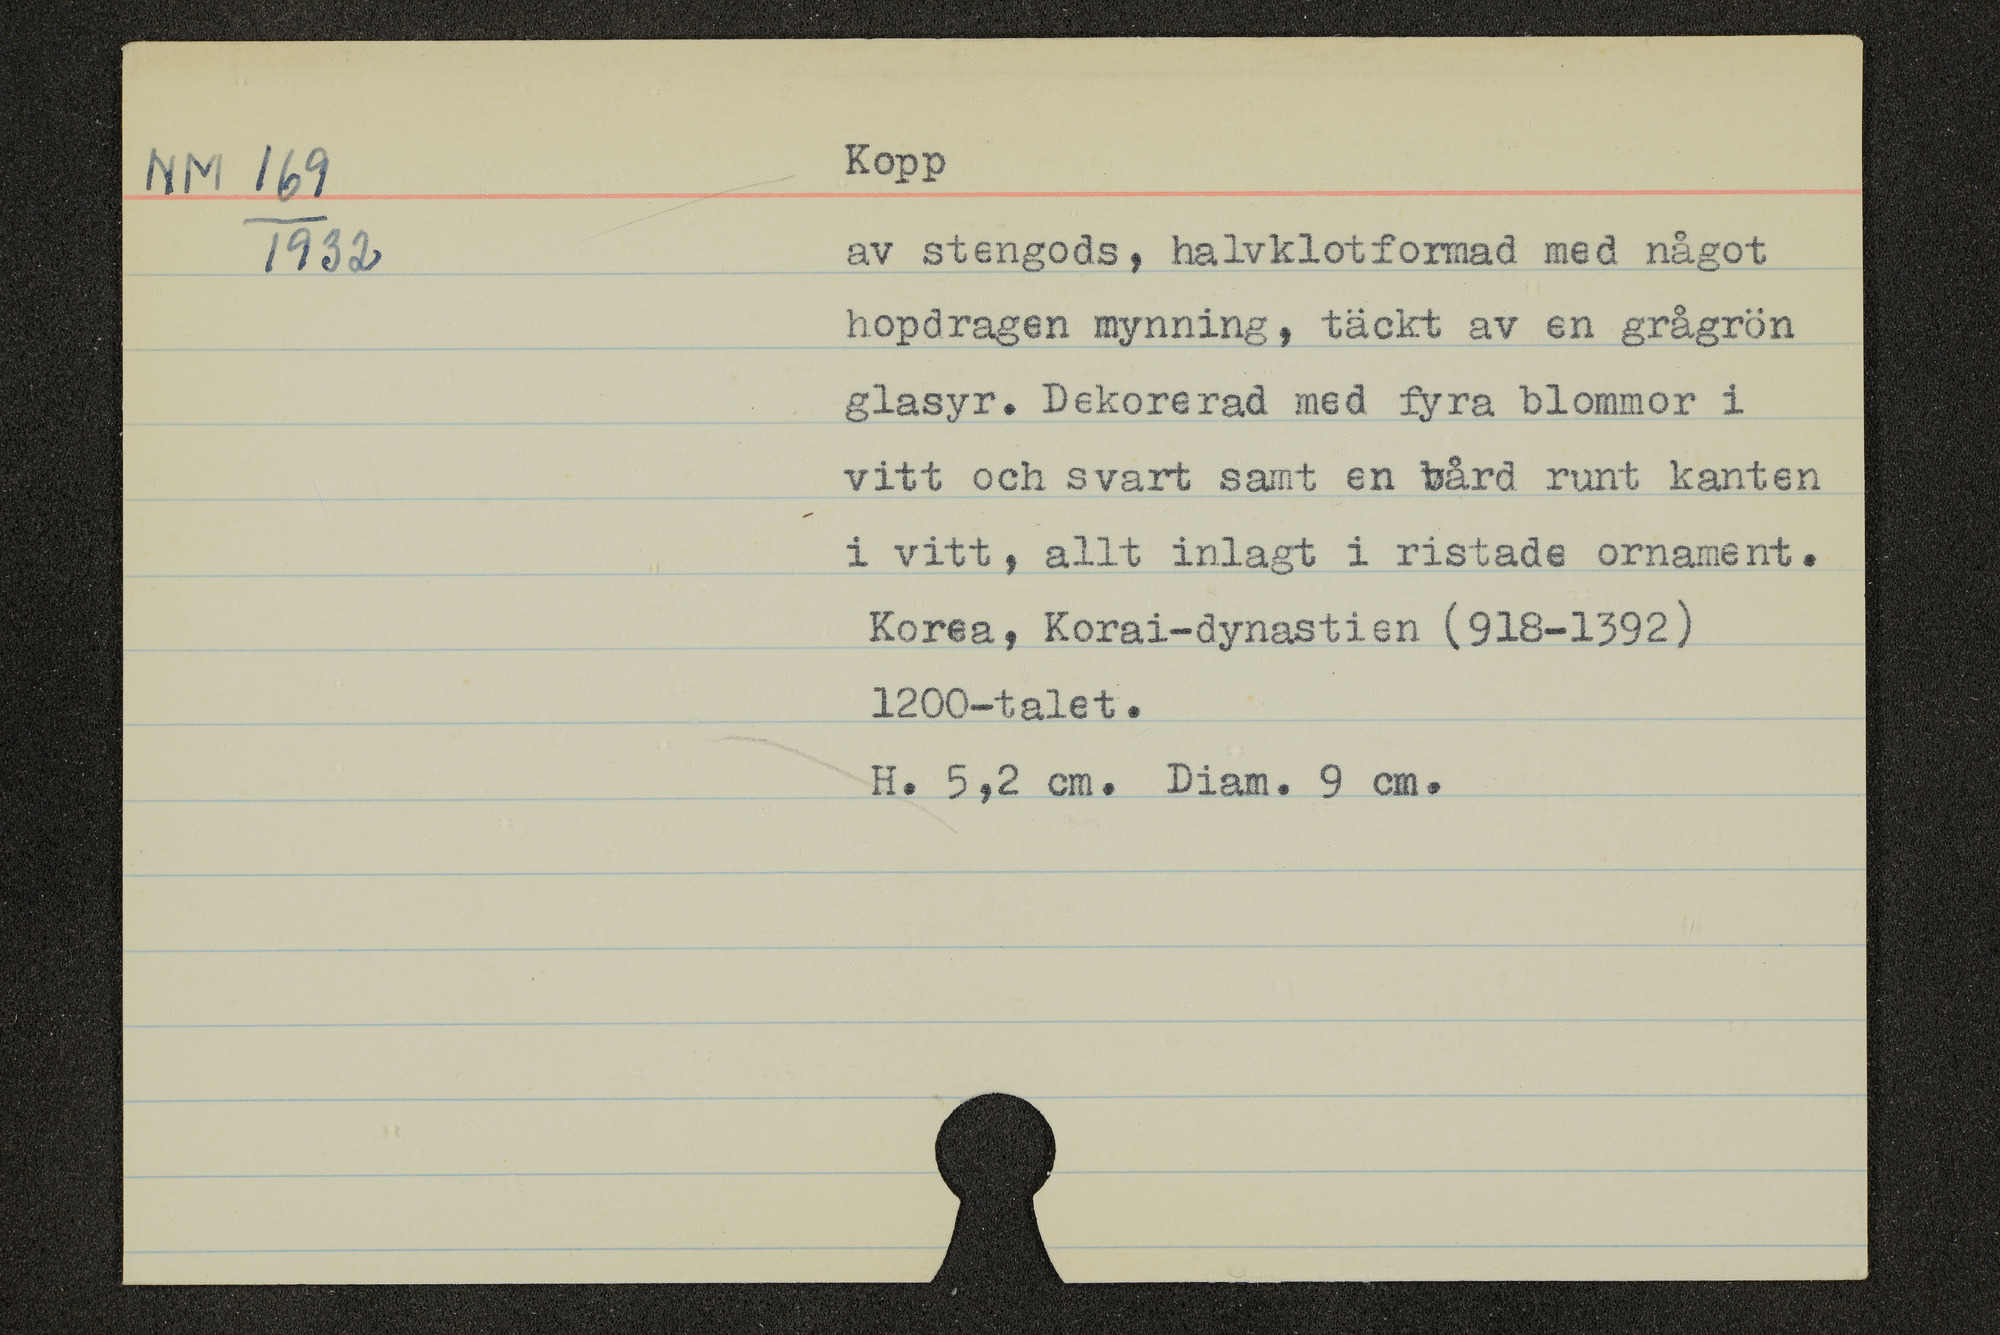 NM 169
1932
Kopp
av stengods, halvklotformad med något
hopdragen mynning, täckt av en grågrön
glasyr. Dekorerad med fyra blommor i
vitt och svart samt en bård runt kanten
i vitt, allt inlagt i ristade ornament.
Korea, Korai-dynastien (918-1392)
1200-talet.
H. 5,2 cm. Diam. 9 cm.